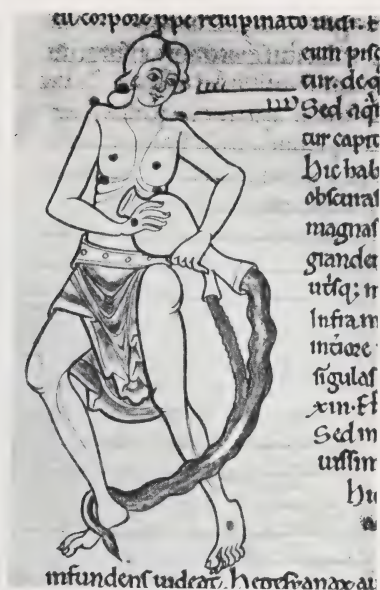 cū corpore ppe resupinato uidet. E
cum pisc
tur. de q
Sed aqͥ
tur capit
Hic hab
obscuras
magnas
grandes
utsq; in
Infra m
sigulas
xiii. Et
Sed in
uissim
Hic
infundens uideat. Hegesianax au